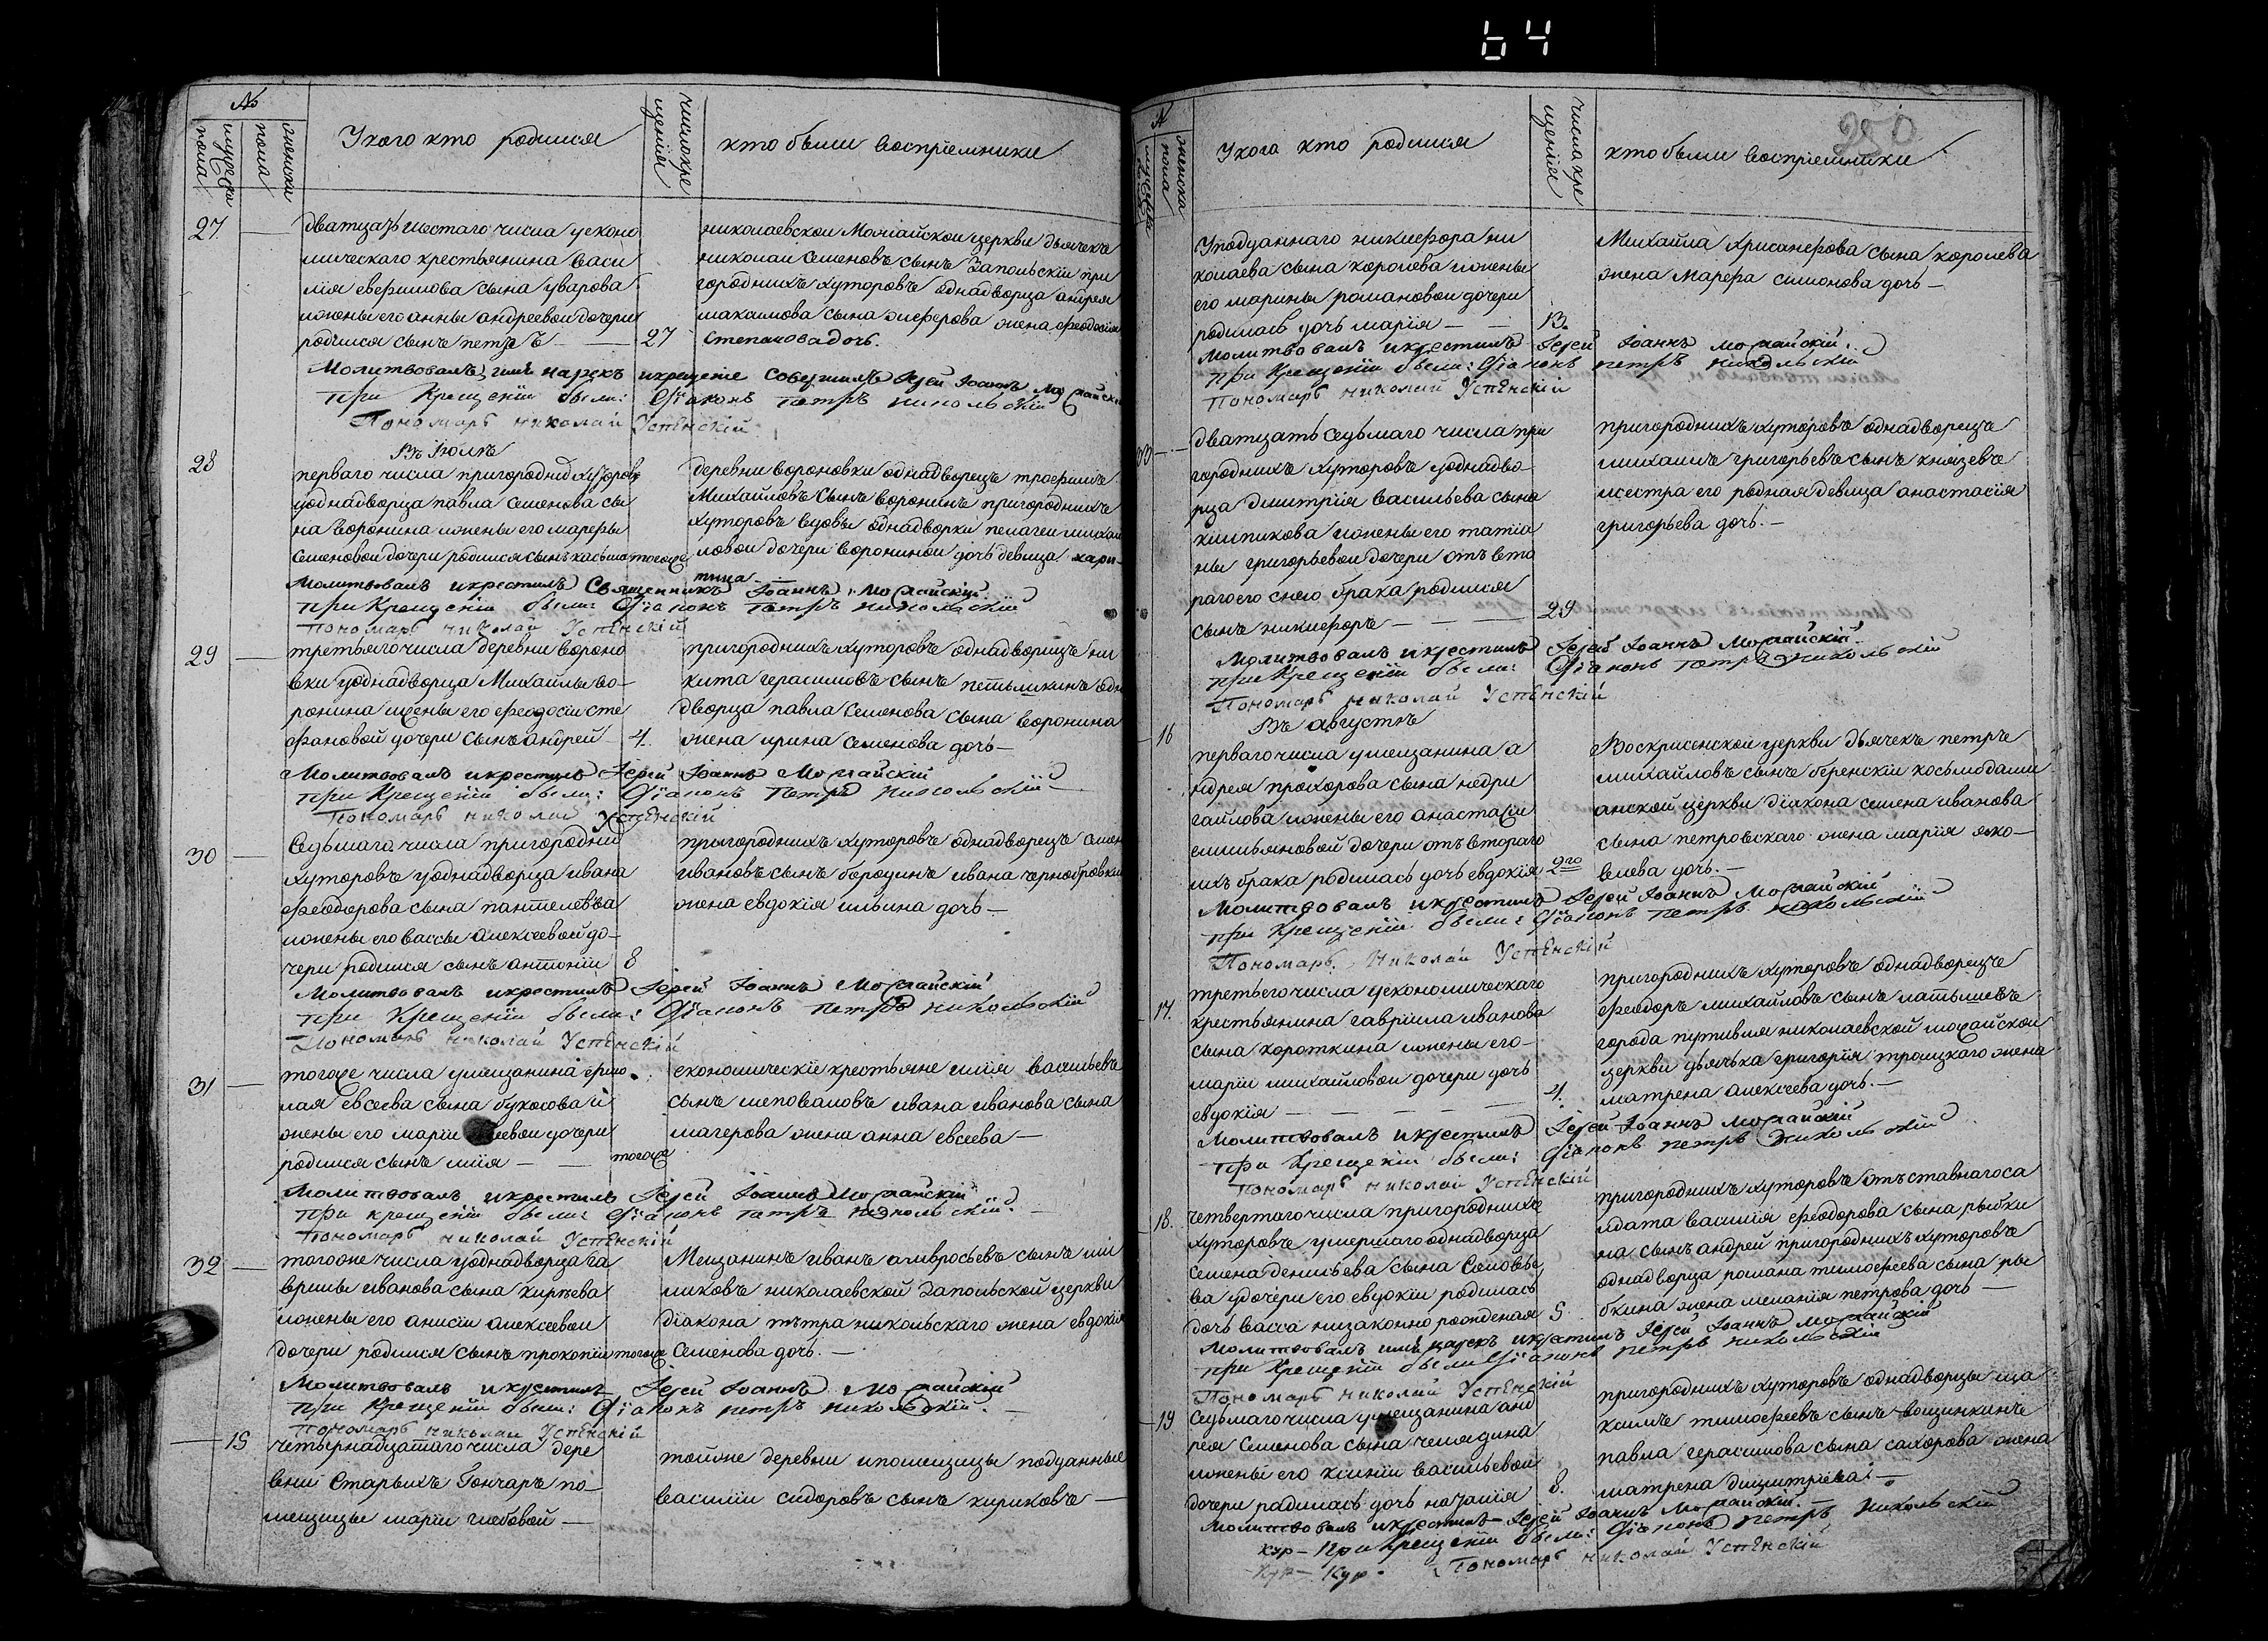 64
№
мужеска пола
женска пола
У кого кто родился
число крещения
кто были восприемники
27
дватцать шестаго числа у економ
мическаго крестьянина васи
лия евфимова сына уварова
и жены его анны андреевой дочери
родился сынъ петръ
27
николаевской Можайской церкви дьячекъ
николай Семеновъ сынъ Запольскій при
городнихъ хуторовъ однадворца андрея
максимова сына жиферова жена феодосия
степанова дочь.
Молитвовалъ, имя нарекъ и крещение совершилъ Іерей Іоаннъ Можайскій
При Крещеніи были: Діаконъ Петръ Никольскій
Пономарь Николай Успѣнскій
Въ Іюлѣ
28
перваго числа пригородних хуторовъ
у однадворца павла Семенова сы
на воронина и жены его марфы
Семеновой дочери родился сынъ касьма
тогоже
деревни вороновки однадворецъ трофимъ
Михайловъ сынъ воронинъ пригороднихъ
хуторовъ вдовы однадворки пелагеи михаи
ловой дочери ворониной дочь девица хари-
тина
Молитвовалъ и крестилъ Священникъ Іоаннъ Можайскій
При Крещеніи были: Діаконъ Петръ Никольскій
Пономарь Николай Успѣнскій
29
третьяго числа деревни вороно
вки у однадворца Михайлы во-
ронина и жены его феодосии сте
фановой дочери сынъ андрей
4.
пригороднихъ хуторовъ однадворецъ ни
кита герасимовъ сынъ петыликинъ одн
дворца павла Семенова сына воронина
жена ирина Семенова дочь
Молитвовалъ и крестилъ Іерей Іоаннъ Можайскій
При Крещеніи были: Діаконъ Петръ Никольскій
Пономарь Николай Успѣнскій
30
Седьмаго числа пригородних
хуторовъ у однадворца ивана
феодорова сына пантелеева
и жены его вассы алексеевой до-
чери родился сынъ антоний
8
пригороднихъ хуторовъ однадворецъ Семен
ивановъ сынъ бородинъ ивана чернобровкин
жена евдокия ильина дочь
Молитвовалъ и крестилъ Іерей Іоаннъ Можайскій
При Крещеніи были: Діаконъ Петръ Никольскій
Пономарь Николай Успѣнскій
31
тогоже числа у мещанина ермо
лая евсеева сына букосова и
жены его марии еевой дочери
родился сынъ илия
тогоже
економические крестьяне илия васильевъ
сынъ шеповаловъ ивана иванова сына
магерова жена анна евсеева
Молитвовалъ и крестилъ Іерей Іоаннъ Можайскій
При крещеніи были: Діаконъ Петръ Никольскій.
Пономарь Николай Успѣнскій
32
тогоже числа у однадворца га
врилы иванова сына киреева
и жены его анисии алексеевой
дочери родился сынъ прокопий
тогоже
Мещанинъ иванъ амвросьевъ сынъ ши
шковъ николаевской Запольской церкви
діакона петра никольскаго жена евдокия
Семенова дочь.
Молитвовалъ и крестилъ Іерей Іоаннъ Можайскій
При Крещеніи были: Діаконъ Петръ Никольскій.
Пономарь Николай Успѣнскій
15
четырнадцатаго числа дере
вни Старыхъ Гончаръ по-
мещицы марии глебовой
тойже деревни и помещицы подданные
василии сидоровъ сынъ кириковъ
250
№
мужеска пола
женска пола
У кого кто родился
числа крещения
кто были восприемники
У подданнаго никифора ни
колаева сына королева и жены
его марины романовой дочери
родилась дочь мария
13.
Михайла хрисанфова сына королева
жена марфа симонова дочь
Молитвовалъ и крестилъ Іерей Іоаннъ Можайскій.
При Крещеніи были: Діаконъ Петръ Никольскій
Пономарь Николай Успѣнскій
33
дватцать седьмаго числа при
городнихъ хуторовъ у однадво-
рца димитрия васильева сына
климкова и жены его татиа
ны григорьевой дочери отъ вто
раго его снею брака родился
сынъ никифоръ
29
пригороднихъ хуторовъ однадворецъ
михаилъ григорьевъ сынъ князевъ
и сестра его родная девица анастасия
григорьева дочь.
Молитвовалъ и крестилъ Іерей Іоаннъ Можайскій.
При Крещеніи были: Діаконъ Петръ Никольскій
Пономарь Николай Успѣнскій
Въ августѣ
16
перваго числа у мещанина а
ндрея прохорова сына недри
гайлова и жены его анастасии
емильяновой дочери отъ втораго
ихъ брака родилась дочь евдокия
2го
Воскрисенской церкви дьячекъ петръ
михайловъ сынъ беренский косьмодами
анской церкви діакона семена иванова
сына петровскаго жена мария яко-
влева дочь.
Молитвовалъ и крестилъ Іерей Іоаннъ Можайскій
При Крещеніи были: Діаконъ Петръ Никольскій
Пономарь Николай Успѣнскій
17.
третьего числа у економическаго
крестьянина гавриила иванова
сына короткина и жены его
марии михайловой дочери дочь
евдокия
4.
пригороднихъ хуторовъ однадворецъ
феодоръ михайловъ сынъ латышевъ
города путивля николаевской можайской
церкви дьячька григория троицкаго жена
матрена алексеева дочь.
Молитвовалъ и крестилъ Іерей Іоаннъ Можайскій
При Крещеніи были: Діаконъ Петръ Никольскій
Пономарь Николай Успѣнскій
18.
четвертаго числа пригороднихъ
хуторовъ умершаго однадворца
Семена денисьева сына Соловье
ва у дочери его евдокии родилась
дочь васса низаконно рожденая
5.
пригороднихъ хуторовъ отъставнаго са
лдата василия феодорова сына рыбки
на сынъ андрей пригороднихъ хуторовъ
однадворца романа тимофеева сына ры
бкина жена мелания петрова дочь
Молитвовалъ имя нарекъ и крестилъ Іерей Іоаннъ Можайскій
При Крещеніи были Діаконъ Петръ Никольскій
Пономарь Николай Успѣнскій
19
Седьмаго числа у мещанина анд
рея Семенова сына челядина
и жены его васильевой
дочери радилась дочь наталия
8.
пригороднихъ хуторовъ однадворцы ма
ксимъ тимофеевъ сынъ вощинкинъ
павла герасимова сына сахорова жена
матрена димитриева
Молитвовалъ и крестилъ Іерей Іоаннъ Можайскій.
кур- При Крещеніи были: Діаконъ Петръ Никольскій
кур- кур- Пономарь Николай Успѣнскій